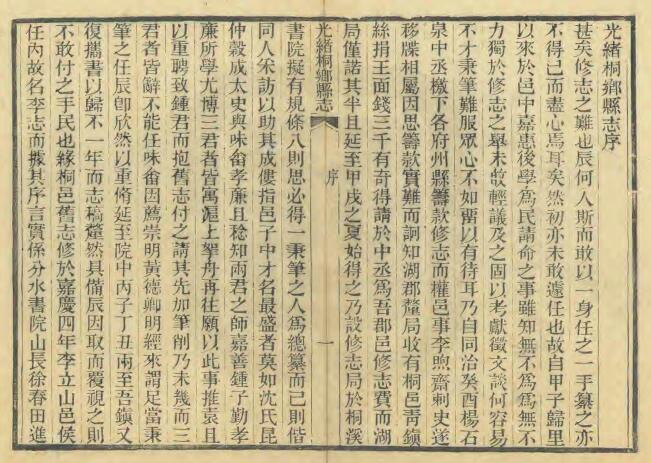 光緒桐鄉縣志序
甚矣修志之難也辰何人斯而敢以一身任之一手纂之亦
不得已而盡心焉耳矣然初亦未敢遽任也故自甲子歸里
以來於邑中嘉惠後學爲民請命之事雖知無不爲爲無不
力獨於修志之舉未敢輕議及之固以考獻徵文談何容易
不才秉筆難服眾心不如留以有待耳乃自同治癸酉楊石
泉中丞檄下各府州縣籌款修志而權邑事李煦齋刺史遂
移牒相屬因思籌款實難而詗知湖郡釐局收有桐邑靑鎭
絲捐王面錢三千有奇得請於中丞爲吾郡邑修志費而湖
局僅諾其半且延至甲戌之夏始得之乃設修志局於桐溪
光緒桐鄉縣志
序
一
書院擬有規條八則思必得一秉筆之人爲總纂而已則偕
同人采訪以助其成僂指邑子中才名最盛者莫如沈氏昆
仲穀成太史與味畬孝廉且稔知兩君之師嘉善鍾子勤孝
廉所學尤博三君者皆寓滬上挐舟再往願以此事推袁且
以重聘致鍾君而抱舊志付之請其先加筆削乃未幾而三
君者皆辭不能任味畬因薦崇明黃德卿明經來謂足當秉
筆之任辰卽欣然以重脩延至院中丙子丁丑兩至吾鎭又
復攜書以歸不一年而志稿犛然具備辰因取而覆視之則
不敢付之手民也緣桐邑舊志修於嘉慶四年李立山邑侯
任內故名李志而據其序言實係分水書院山長徐春田進